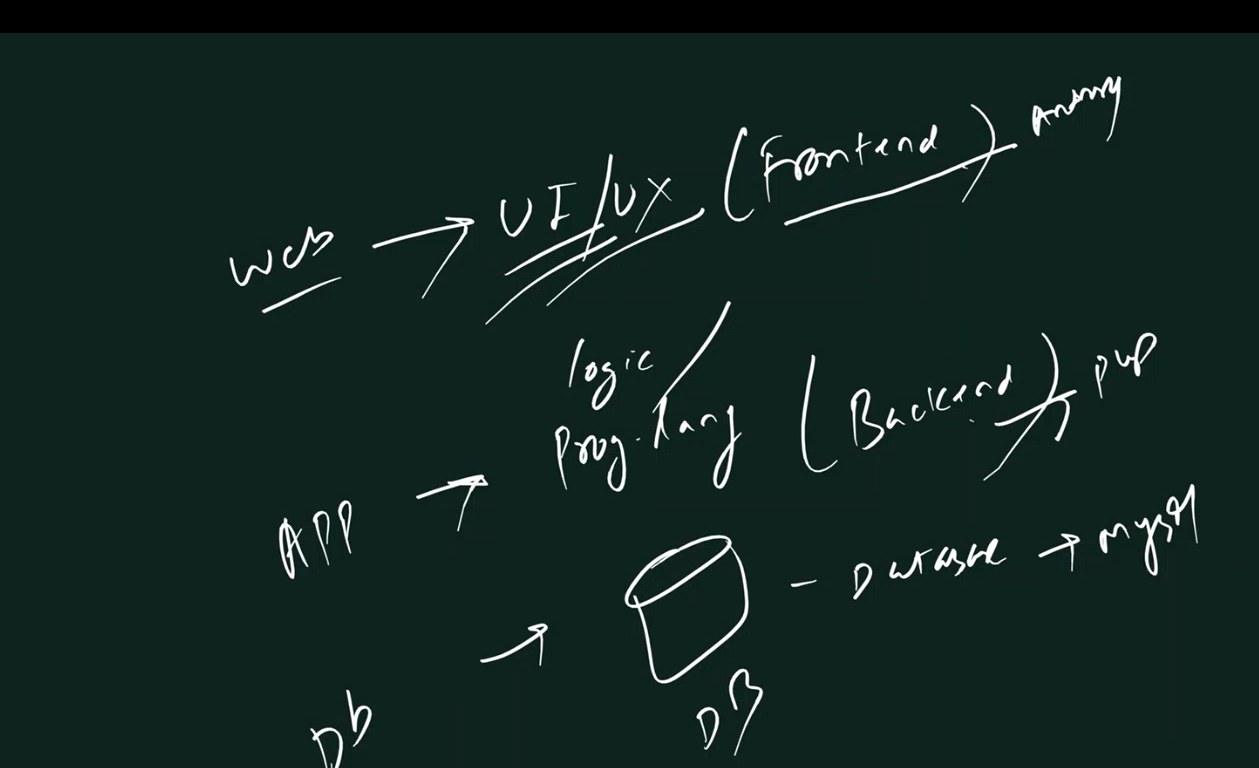 Web → UI/UX (Frontend)
logic
APP → Prog. lang (Backend) PHP
Db → DB - Database → mysql